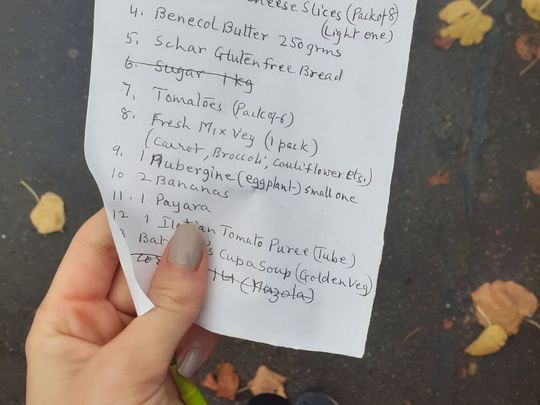 Cheese Slices (Pack of 8)
(Light one)
4. Benecol Butter 250grms
5. Schar Gluten free Bread
6. Sugar 1 Kg
7. Tomatoes (Pack of 6)
8. Fresh Mix Veg (1 pack)
(Carrot, Broccoli, Cauliflower Etc,)
9. 1 Aubergine (eggplant) small one
10 2 Bananas
11. 1 Payara
12 1 Tomato Puree (Tube)
3 Cup a Soup (Golden Veg)
1 Lt (Mazola)